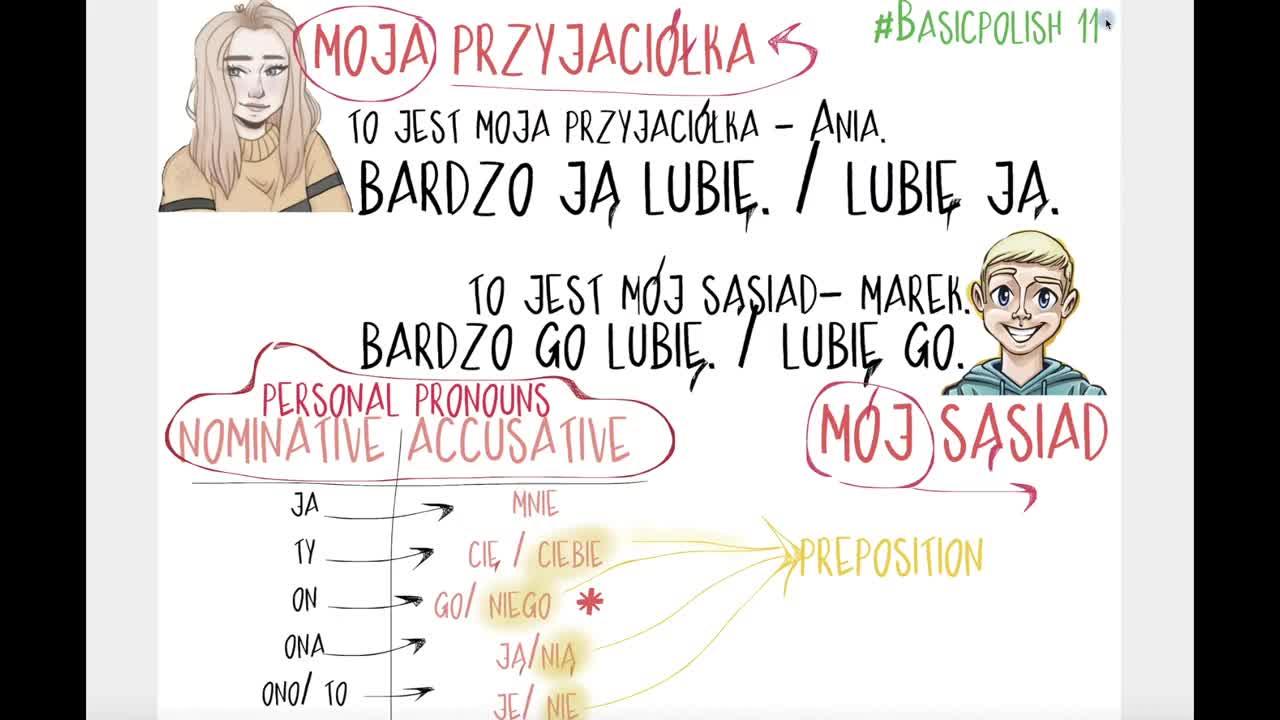 #BASICPOLISH 11
MOJA PRZYJACIÓŁKA
TO JEST MOJA PRZYJACIÓŁKA – ANIA.
BARDZO JĄ LUBIĘ. / LUBIĘ JĄ.
TO JEST MÓJ SĄSIAD– MAREK.
BARDZO GO LUBIĘ. / LUBIĘ GO.
MÓJ SĄSIAD
PERSONAL PRONOUNS
NOMINATIVE ACCUSATIVE
JA MNIE
TY CIĘ / CIEBIE
PREPOSITION
ON GO/ NIEGO *
ONA JĄ/NIĄ
ONO/ TO JE/ NIE